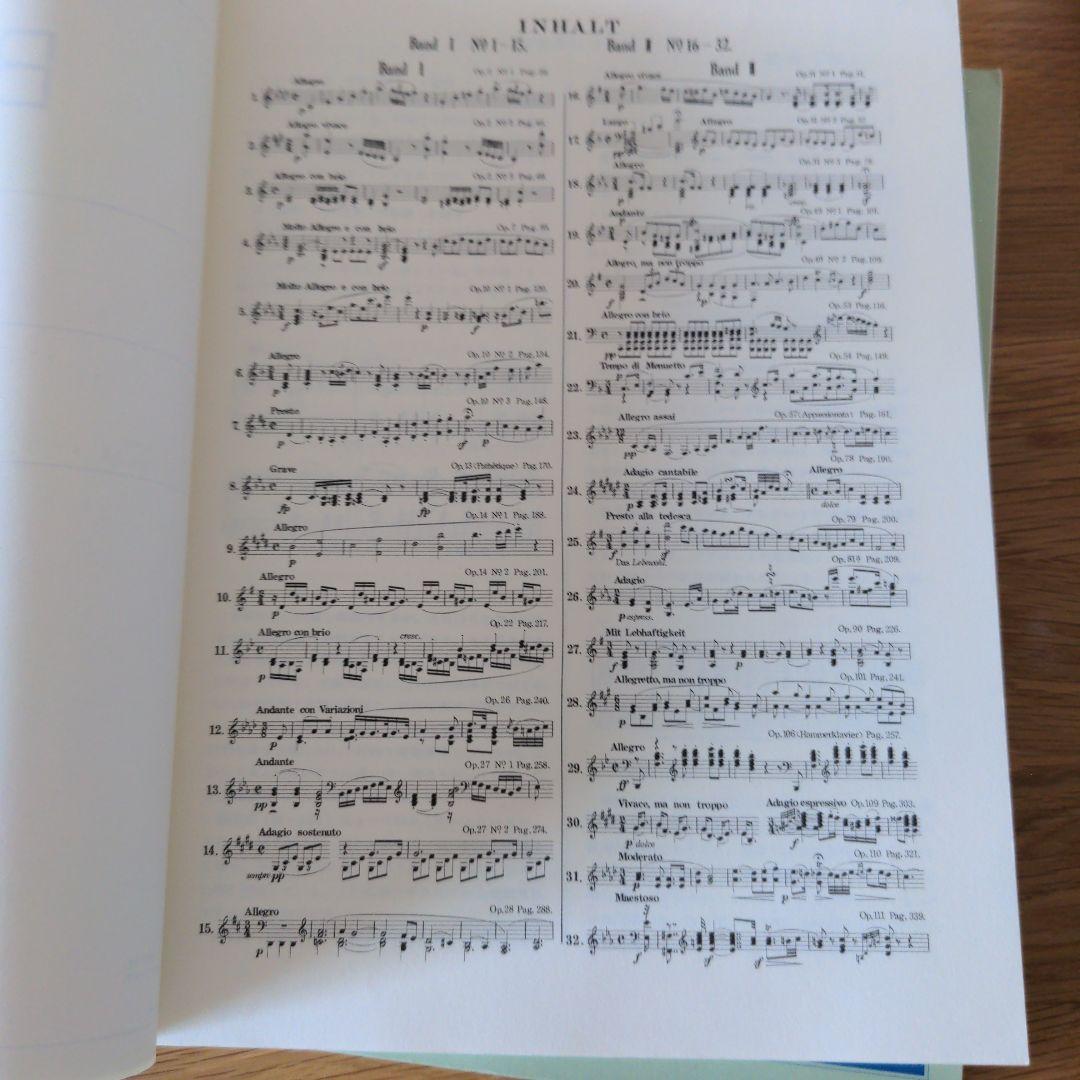 INHALT
Band I Nº 1-15.
Band II Nº 16-32.
Band I
1. Allegro
2. Allegro vivace
3. Allegro con brio
4. Molto Allegro e con brio Op.7
5. Molto Allegro e con brio Op.10 Nº 1 Pag.120.
p
f
6. Allegro Op.10 Nº 2 Pag.134.
p
7. Presto Op.10 Nº 3 Pag.148.
p sf p
8. Grave Op.13 (Pathétique) Pag.170.
fp fp
9. Allegro Op.14 Nº 1 Pag.188.
p
10. Allegro Op.14 Nº 2 Pag.201.
p
11. Allegro con brio cresc. Op.22 Pag.217.
p
12. Andante con Variazioni Op.26 Pag.240.
p
13. Andante Op.27 Nº 1 Pag.258.
pp
14. Adagio sostenuto Op.27 Nº 2 Pag.274.
sempre pp
15. Allegro Op.28 Pag.288.
p
Band II
16. Allegro vivace
17. Largo Allegro
pp p
18. Allegro
19. Andante
20. Allegro, ma non troppo
21. Allegro con brio Op.53 Pag.116.
pp
22. Tempo di Menuetto Op.54 Pag.149.
p
23. Allegro assai Op.57 (Appassionata) Pag.161.
pp
24. Adagio cantabile Allegro Op.78 Pag.190.
p dolce
25. Presto alla tedesca Op.79 Pag.200.
f
Das Lebewohl.
26. Adagio Op.81a Pag.209.
p espress.
27. Mit Lebhaftigkeit Op.90 Pag.226.
f p
28. Allegretto, ma non troppo Op.101 Pag.241.
p
29. Allegro Op.106 (Hammerklavier) Pag.257.
ff
30. Vivace, ma non troppo Adagio espressivo Op.109 Pag.303.
p dolce f p
31. Moderato Op.110 Pag.321.
p
32. Maestoso Op.111 Pag.339.
f sf sf